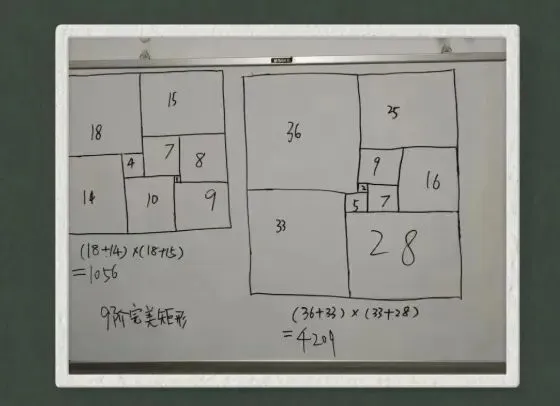 15
18
7
8
4
14
10
9
(18+14)×(18+15)
=1056
9阶完美矩形
25
36
9
16
2
5
7
33
28
(36+33)×(33+28)
=4209